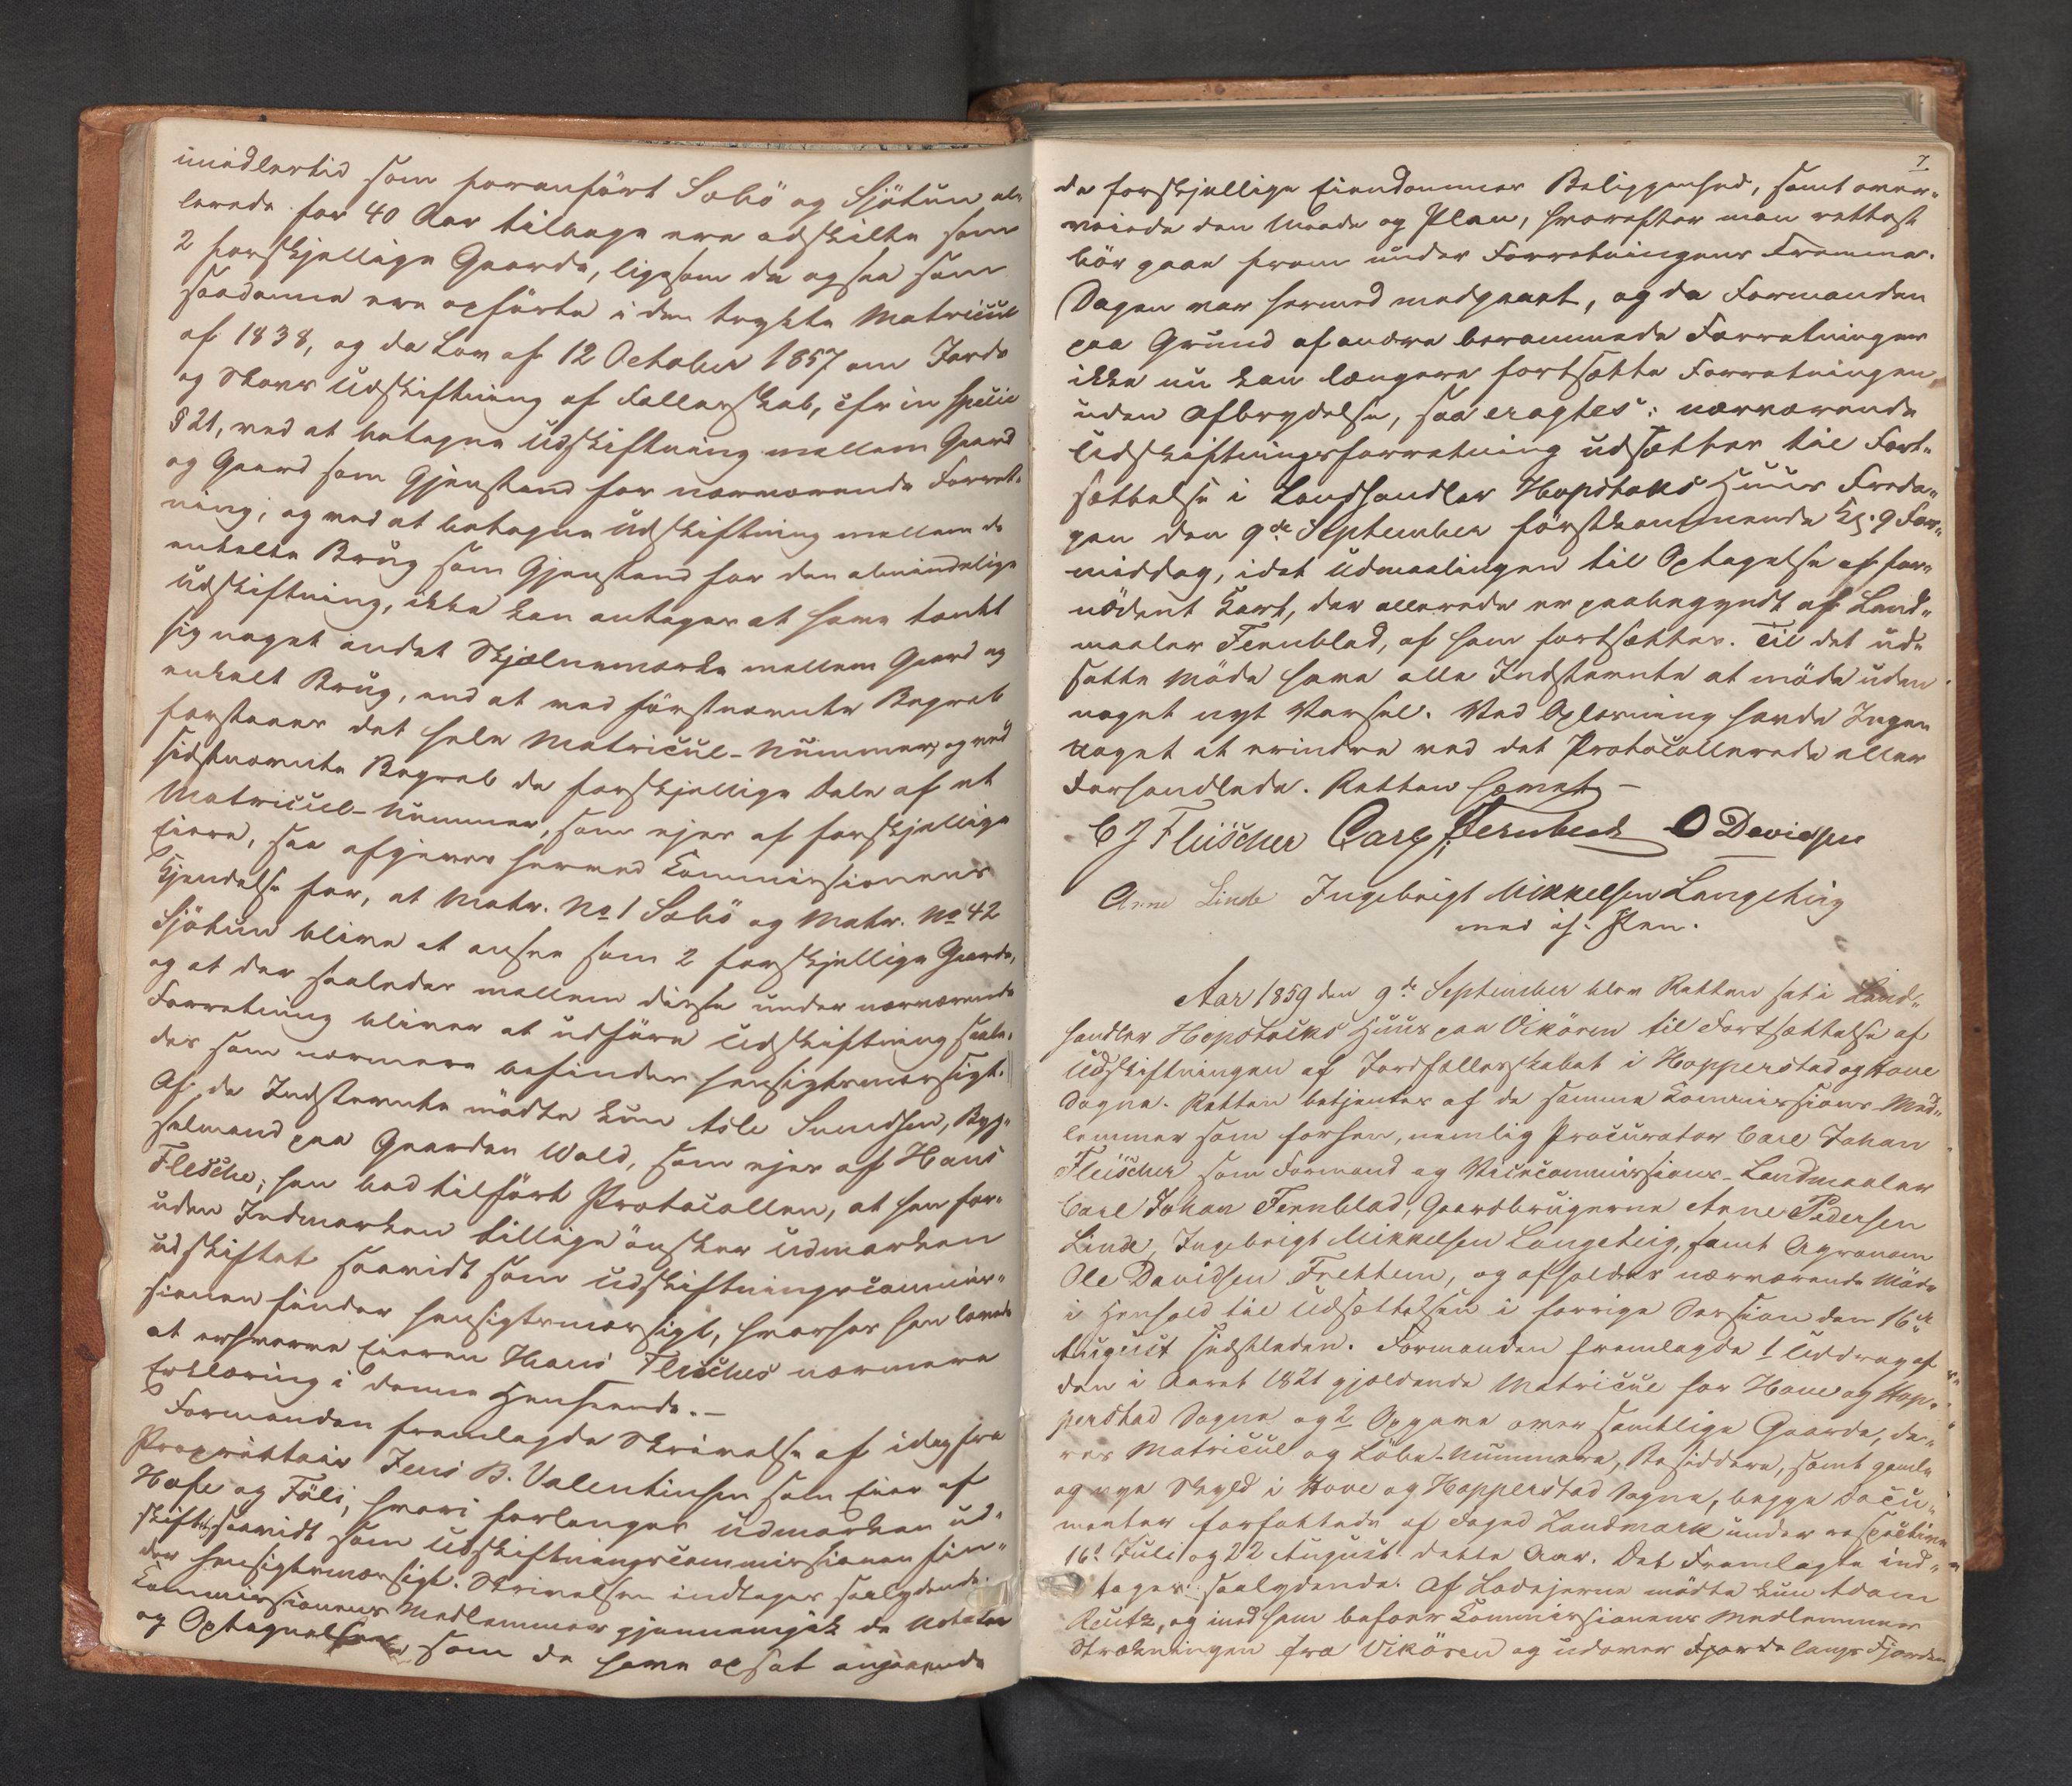 imidlertid som foranført Sæbö og Sjötun al-
lerede for 40 Aar tilbage ere adskilte som
2 forskjellige Gaarde, ligesom de ogsaa som
saadanne ere opførte i den trykte Matricül
af 1838, og da Lov af 12 October 1857 om Jords
og Skovs Udskiftning af Fællesskab, cfr in specie
§ 21, ved at betegne Udskiftning mellem Gaard
og Gaard som Gjenstand for nærværende Forret-
ning, og ved at betegne Udskiftning mellem de
enkelte Brüg som Gjenstand for den almindelige
Udskiftning, ikke kan antages at have tænkt
sig noget andet Skjælnemærke mellem Gaard og
enkelt Brüg, end at ved førstnævnte Begreb
forstaaes det hele Matricül-Nümmer, og ved
sidstnævnte Begreb de forskjellige Dele af et
Matricül-Nümmer, som ejes af forskjellige
Eiere, saa afgives herved Commissionens
Kjendelse for, at Matr. No 1 Sæbö og Matr. No 42
Sjötun blive at ansee som 2 forskjellige Gaarde,
og at der saaledes mellem disse under nærværende
Forretning bliver at udføre Udskiftning saale-
des som nærmere befindes hensigtsmæssigt.
Af de Indstevnte mødte kun Asle Sundsen, Byg-
selmand paa Gaarden Wold, som ejes af Hans
Fleische; han bad tilført Protocollen, at han for-
uden Indmarken tillige ønsker Udmarken
udskiftet saavidt som Udskiftningscommis-
sionen finder hensigtsmæssigt, hvorhos han lovede
at erhverve Eieren Hans Fleisches nærmere
Erklæring i denne Henseende.—
Formanden fremlagde Skrivelse af idag fra
Proprietair Jens B. Valentinsen som Eier af
Hofe og Föli, hvori forlanges Udmarken ud-
skiftet saavidt som Udskiftningscommissionen fin-
der hensigtsmæssigt. Skrivelsen indtages saalydende.
Commissionens Medlemmer gjennemgik de Notater
og Optagnelser som de have opsat angaaende
7
de forskjellige Eiendommes Beliggenhed, samt over-
veiede den Maade og Plan, hvorefter man rettest
bör gaae frem under Forretningens Fremme.
Dagen var hermed medgaaet, og da Formanden
paa Grund af andre berammede Forretninger
ikke nu kan længere fortsætte Forretningen
uden Afbrydelse, saa eragtes: nærværende
Udskiftningsforretning udsættes til Fort-
sættelse i Landhandler Hopstoks Huus Freda-
gen den 9de September førstkommende Kl. 9 For-
middag, idet Udmaalingen til Optagelse af for-
nödent Kart, der allerede er paabegyndt af Land-
maaler Fernblad, af ham fortsættes. Til det ud-
satte Möde have alle Indstevnte at möde uden
noget nyt Varsel. Ved Oplæsning havde Ingen
noget at erindre ved det Protocollerede eller
Forhandlede. Retten hævet —
C J Fleischer Carl J. Fernblad O Davidsen
Arne Linde Ingebrigt Mikkelsen Langeteig
med ih. Pen.
Aar 1859 den 9de September blev Retten sat i Land-
handler Hopstocks Huus paa Vikören til Fortsættelse af
Udskiftningen af Jordfællesskabet i Hopperstad og Hove
Sogne. Retten betjentes af de samme Commissions-Med-
lemmer som forhen, nemlig Procurator Carl Johan
Fleischer som Formand og Vicecommissions-Landmaaler
Carl Johan Fernblad, Gaardbrugerne Arne Pedersen
Linde, Ingebrigt Mikkelsen Langeteig, samt Agronom
Ole Davidsen Frettem, og afholdes nærværende Möde
i Henhold til Udsættelsen i forrige Session den 16de
August sidstleden. Formanden fremlagde 1 Uddrag af
den i Aaret 1821 gjældende Matricül for Hove og Hop-
perstad Sogne og 2 Opgave over samtlige Gaarde, de-
res Matricül og Löbe-Nummere, Besiddere, samt gamle
og nye Skyld i Hove og Hopperstad Sogne, begge Docu-
menter forfattede af Foged Landmark under respective
16d Juli og 22 August dette Aar. Det Fremlagte ind-
tages saalydende. Af Lodejerne mödte kun Adam
Reutz, og med ham befoer Commissionens Medlemmer
Strækningen fra Vikören og udover Fjorde langs Fjorden